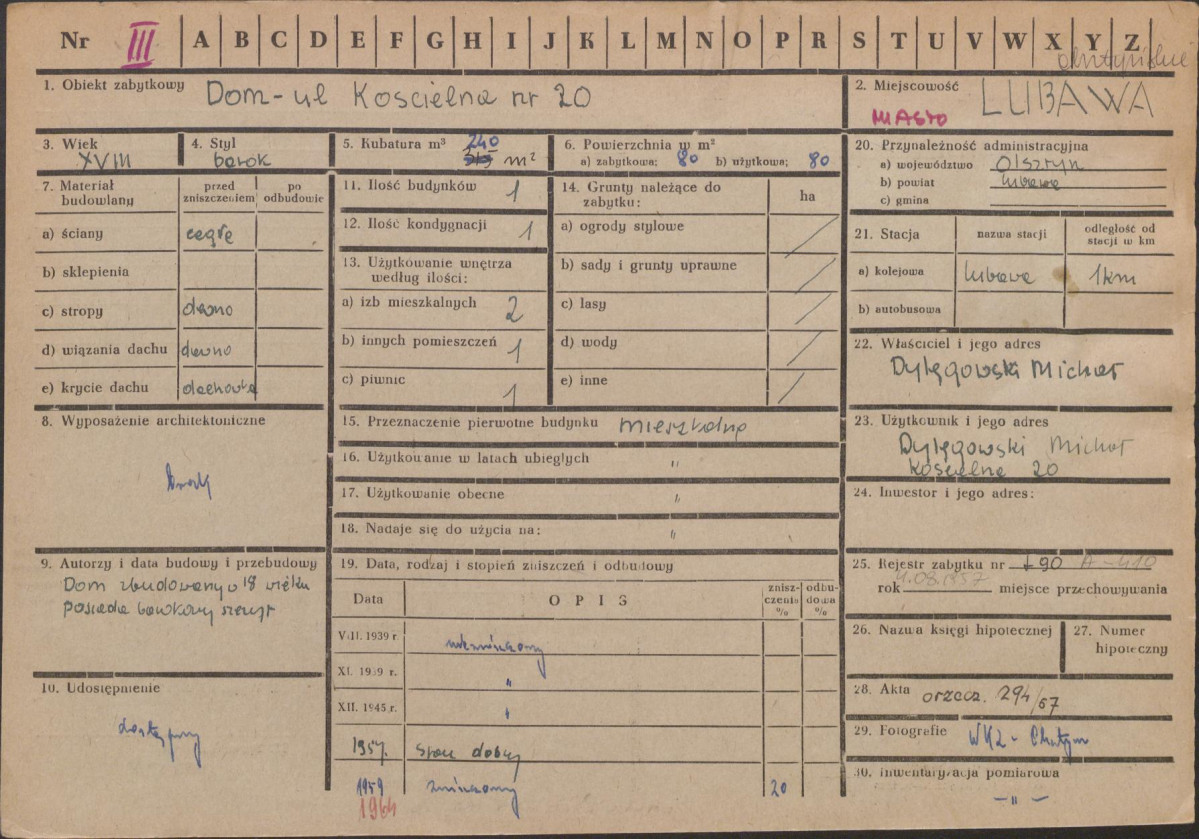 Nr III A B C D E F G H I J K L M N O P R S T U V W X Y Z
olsztyńskie
1. Obiekt zabytkowy Dom - ul Koscielna nr 20
2. Miejscowość LUBAWA
MIASTO
3. Wiek XVIII
4. Styl barok
5. Kubatura m³ 240 m²
6. Powierzchnia w m²
a) zabytkowa; 80 b) użytkowa; 80
7. Materiał budowlany
przed zniszczeniem
po odbudowie
a) ściany cegłę
b) sklepienia
c) stropy drewno
d) wiązania dachu drewno
e) krycie dachu dachówka
8. Wyposażenie architektoniczne
brak
9. Autorzy i data budowy i przebudowy
Dom zbudowany w 18 wieku
posiada barokowy szczyt
10. Udostępnienie
dostępny
11. Ilość budynków 1
12. Ilość kondygnacji 1
13. Użytkowanie wnętrza
według ilości:
a) izb mieszkalnych 2
b) innych pomieszczeń 1
c) piwnic 1
14. Grunty należące do
zabytku:
ha
a) ogrody stylowe /
b) sady i grunty uprawne /
c) lasy /
d) wody /
e) inne /
15. Przeznaczenie pierwotne budynku mieszkalne
16. Użytkowanie w latach ubiegłych "
17. Użytkowanie obecne "
18. Nadaje się do użycia na: "
19. Data, rodzaj i stopień zniszczeń i odbudowy
Data
OPIS
zniszczenia %
odbudowa %
VIII. 1939 r. niezniszczony
XI. 1939 r. "
XII. 1945 r. "
1957. stan dobry
1959 zniszczony 20
1964
20. Przynależność administracyjna
a) województwo Olsztyn
b) powiat Lubawa
c) gmina
21. Stacja
nazwa stacji
odległość od
stacji w km
a) kolejowa Lubawa 1km
b) autobusowa
22. Właściciel i jego adres
Dylęgowski Michał
23. Użytkownik i jego adres
Dylęgowski Michał
Koscielna 20
24. Inwestor i jego adres:
25. Rejestr zabytku nr 490 A-410
rok 4.08.1957 miejsce przechowywania
26. Nazwa księgi hipotecznej
27. Numer
hipoteczny
28. Akta orzecz. 294/57
29. Fotografie WKZ - Olsztyn
30. Inwentaryzacja pomiarowa
- " -